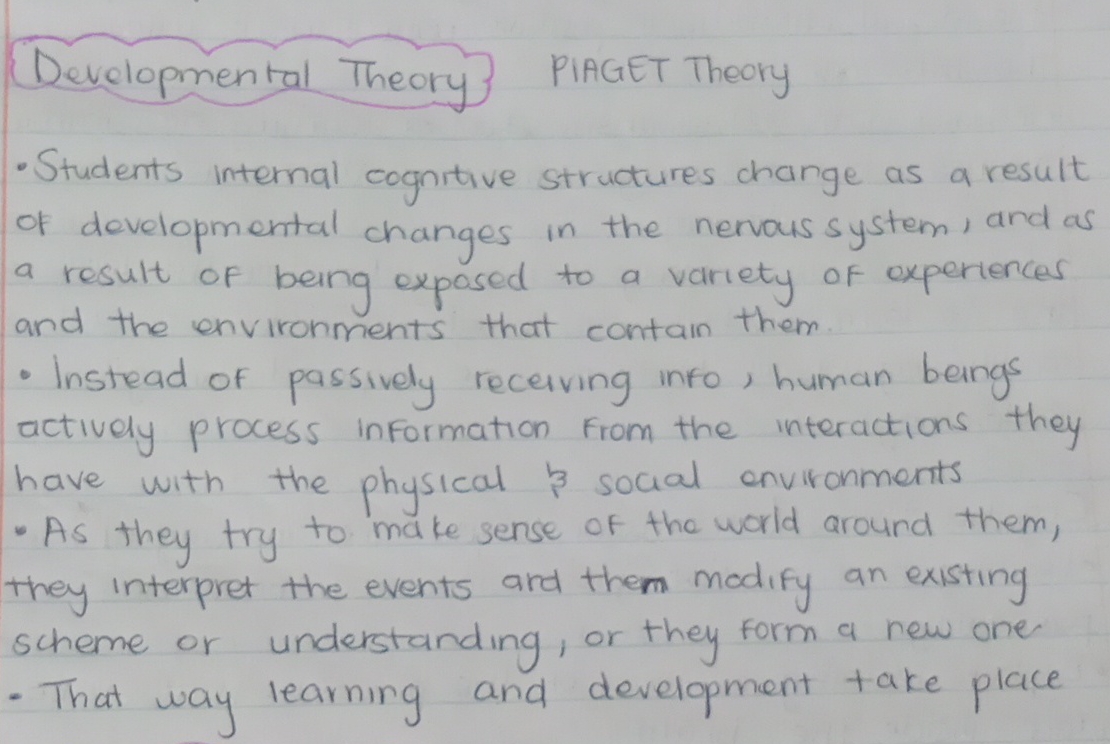 Developmental Theory PIAGET Theory
• Students internal cognitive structures change as a result
of developmental changes in the nervous system, and as
a result of being exposed to a variety of experiences
and the environments that contain them.
• Instead of passively receiving info, human beings
actively process information from the interactions they
have with the physical & social environments
• As they try to make sense of the world around them,
they interpret the events and them modify an existing
scheme or understanding, or they form a new one
- That way learning and development take place